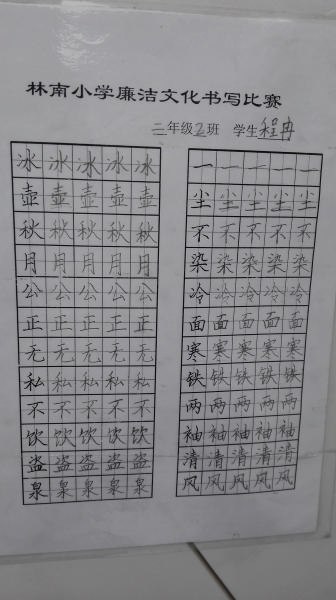 林南小学廉洁文化书写比赛
二年级2班 学生程冉
冰冰冰冰冰
壶壶壶壶壶
秋秋秋秋秋
月月月月月
公公公公公
正正正正正
无无无无无
私私私私私
不不不不不
饮饮饮饮饮
盗盗盗盗盗
泉泉泉泉泉
一一一一一
尘尘尘尘尘
不不不不不
染染染染染
冷冷冷冷冷
面面面面面
寒寒寒寒寒
铁铁铁铁铁
两两两两两
袖袖袖袖袖
清清清清清
风风风风风